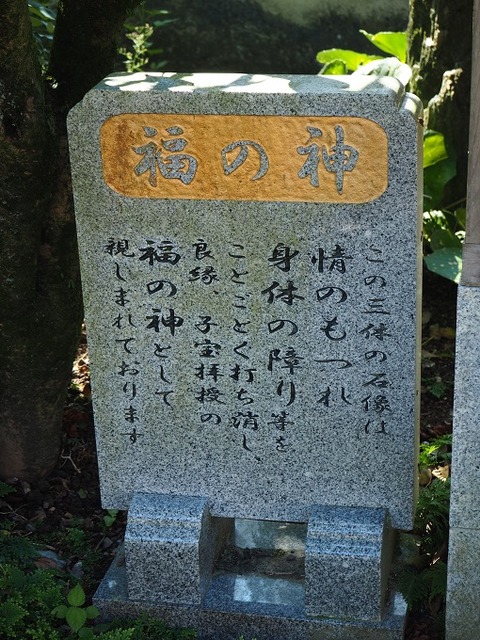 福の神
この三体の石像は
情のもつれ
身体の障り等を
ことごとく打ち消し、
良縁、子宝拝授の
福の神として
親しまれております